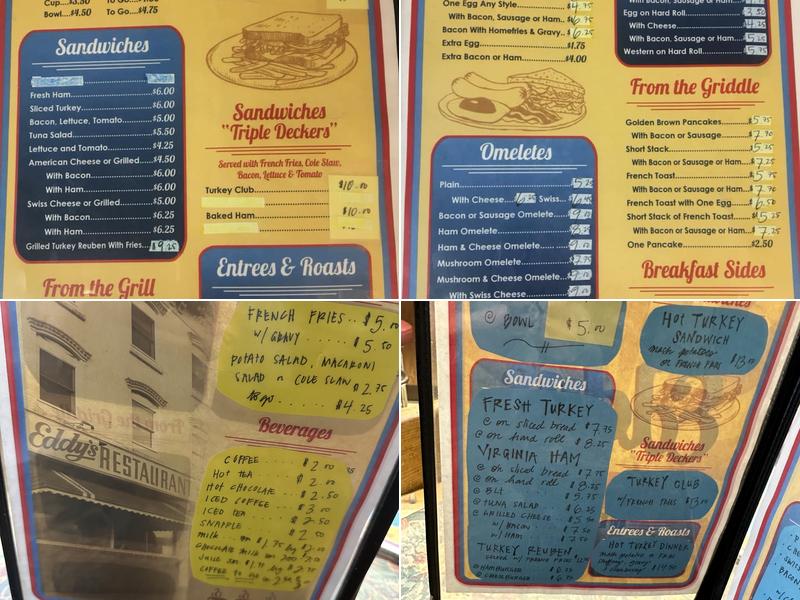 Cup....$3.50 To Go....
Bowl....$4.50 To Go....$4.75
Sandwiches
Fresh Ham $6.00
Sliced Turkey $6.00
Bacon, Lettuce, Tomato $5.00
Tuna Salad $5.50
Lettuce and Tomato $4.25
American Cheese or Grilled $4.50
With Bacon $6.00
With Ham $6.00
Swiss Cheese or Grilled $5.00
With Bacon $6.25
With Ham $6.25
Grilled Turkey Reuben With Fries $9.25
From the Grill
Sandwiches
"Triple Deckers"
Served with French Fries, Cole Slaw,
Bacon, Lettuce & Tomato
Turkey Club $10.00
Baked Ham $10.00
Entrees & Roasts
One Egg Any Style $4.75
With Bacon, Sausage or Ham $6.75
Bacon With Homefries & Gravy $6.25
Extra Egg $1.75
Extra Bacon or Ham $4.00
Omeletes
Plain
With Cheese Swiss
Bacon or Sausage Omelete
Ham Omelete
Ham & Cheese Omelete
Mushroom Omelete
Mushroom & Cheese Omelete
With Swiss Cheese
With Bacon, Sausage or Ham
Egg on Hard Roll
With Cheese 4.25
With Bacon, Sausage or Ham 5.25
Western on Hard Roll $5.75
From the Griddle
Golden Brown Pancakes $5.75
With Bacon or Sausage $7.70
Short Stack $5.25
With Bacon, Sausage or Ham $7.25
French Toast $5.75
With Bacon, Sausage or Ham $7.70
French Toast with One Egg $6.50
Short Stack of French Toast $5.25
With Bacon, Sausage or Ham $7.25
One Pancake $2.50
Breakfast Sides
FRENCH FRIES $5.00
W/ GRAVY $5.50
POTATO SALAD, MACARONI
SALAD n COLE SLAW $2.75
to go $4.25
Eddy's RESTAURANT
Beverages
COFFEE $2.00
HOT TEA $2.00
HOT CHOCOLATE $2.50
ICED COFFEE $3.00
ICED TEA $2.50
SNAPPLE $2.50
milk sm $1.75 lg $2.00
CHOCOLATE milk sm
Juice sm $1.75 lg $2.75
COFFEE to go
@ BOWL $5.00
Sandwiches
FRESH TURKEY
@ on sliced bread $7.75
@ on hard roll $8.25
VIRGINIA HAM
@ on sliced bread $7.75
@ on hard roll $8.25
@ BLT $5.75
@ TUNA SALAD $6.25
@ GRILLED CHEESE $5.50
W/ BACON $7.50
W/ HAM $7.50
TURKEY REUBEN
@ HAMBURGER $6.25
@ CHEESEBURGER $6.75
HOT TURKEY
SANDWICH
mash potatoes
or FRENCH FRIES $13.00
Sandwiches
"Triple Deckers"
TURKEY CLUB
W/ FRENCH FRIES $13.00
Entrees & Roasts
HOT TURKEY DINNER
mash potatoes or FRIES
stuffing, gravy
& cranberry $14.50